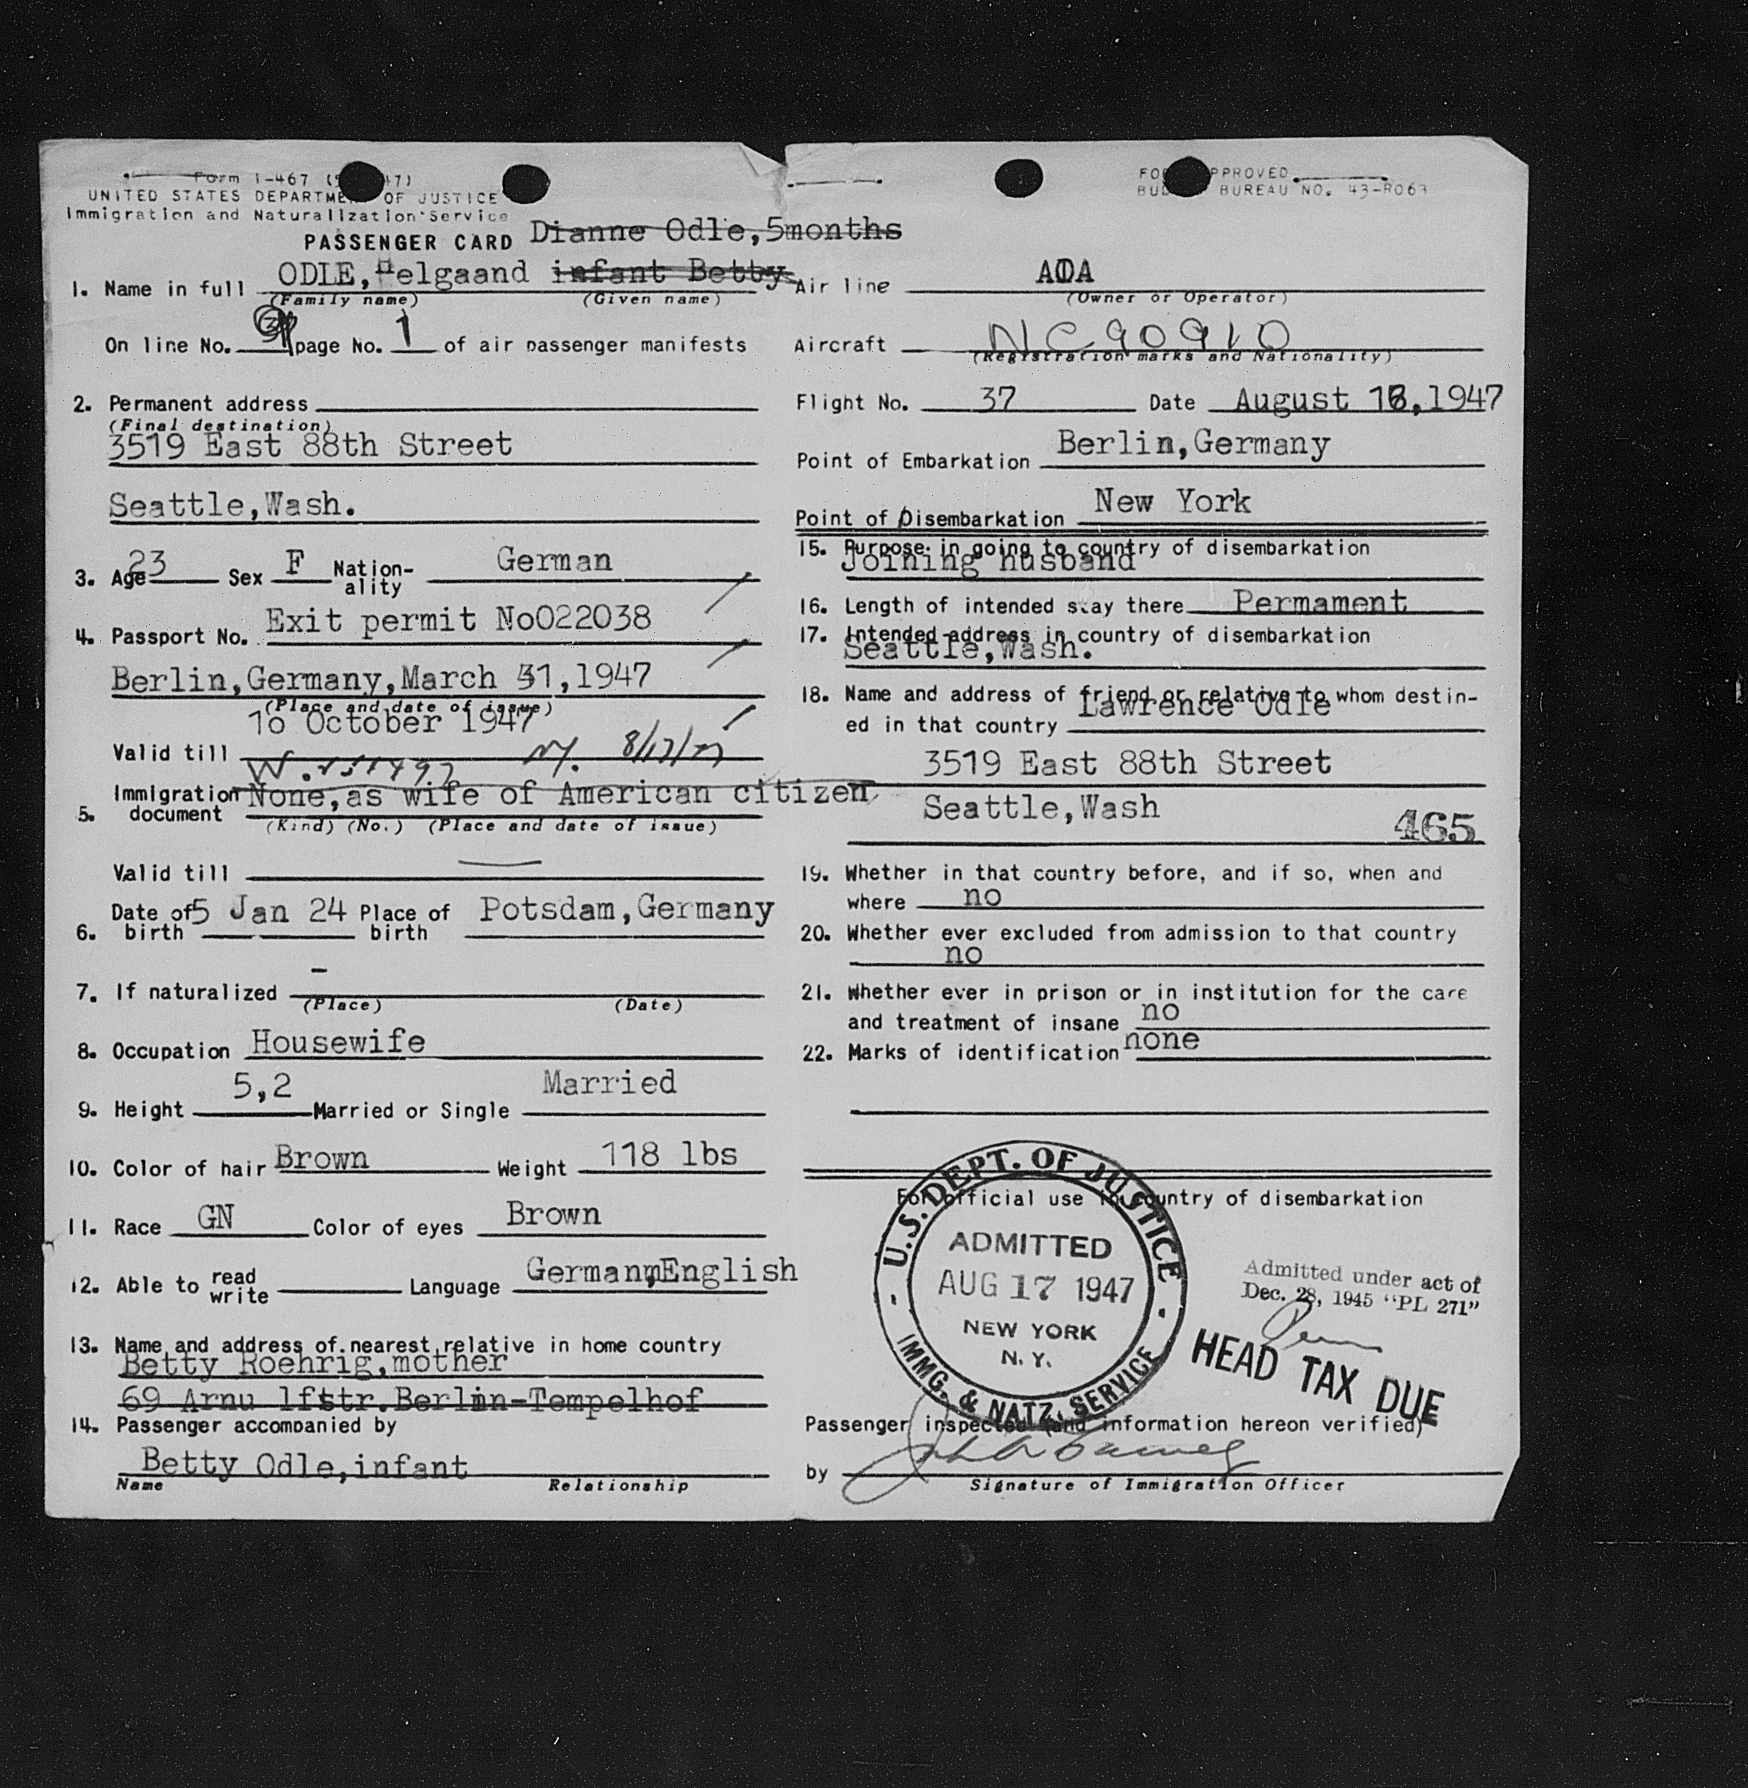 Form I-467 (
UNITED STATES DEPARTMENT OF JUSTICE
Immigration and Naturalization Service
PASSENGER CARD Dianne Odle,5months
1. Name in full ODLE,Helgaand infant Betty
(Family name) (Given name)
On line No. page No. 1 of air passenger manifests
2. Permanent address
(Final destination)
3519 East 88th Street
Seattle,Wash.
3. Age 23 Sex F Nation-
ality German
4. Passport No. Exit permit No022038
Berlin,Germany,March 31,1947
(Place and date of issue)
Valid till 10 October 1947
8/17/47
5. Immigration
document None,as wife of American citizen
(Kind) (No.) (Place and date of issue)
Valid till
6. Date of
birth 5 Jan 24 Place of
birth Potsdam,Germany
7. If naturalized -
(Place) (Date)
8. Occupation Housewife
9. Height 5,2 Married or Single Married
10. Color of hair Brown Weight 118 lbs
11. Race GN Color of eyes Brown
12. Able to read
write Language German,English
13. Name and address of nearest relative in home country
Betty Roehrig,mother
69 Arnu lfstr.Berlin-Tempelhof
14. Passenger accompanied by
Betty Odle,infant
Name Relationship
FORM APPROVED
BUDGET BUREAU NO. 43-R063
Air line AOA
(Owner or Operator)
Aircraft NC90910
(Registration marks and Nationality)
Flight No. 37 Date August 16,1947
Point of Embarkation Berlin,Germany
Point of Disembarkation New York
15. Purpose in going to country of disembarkation
Joining husband
16. Length of intended stay there Permament
17. Intended address in country of disembarkation
Seattle,Wash.
18. Name and address of friend or relative to whom destin-
ed in that country Lawrence Odle
3519 East 88th Street
Seattle,Wash
465
19. Whether in that country before, and if so, when and
where no
20. Whether ever excluded from admission to that country
no
21. Whether ever in prison or in institution for the care
and treatment of insane no
22. Marks of identification none
For official use in country of disembarkation
U.S. DEPT. OF JUSTICE
ADMITTED
AUG 17 1947
NEW YORK
N. Y.
IMMG. & NATZ. SERVICE
Admitted under act of
Dec. 28, 1945 "PL 271"
HEAD TAX DUE
Passenger inspected (and information hereon verified)
by
Signature of Immigration Officer